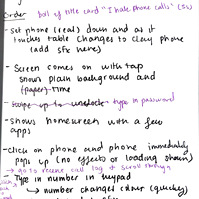 Order  ball of title card "I hate phone calls" (SU)
- Set phone (real) down and as it
touches table changes to clay phone
(add sfx here)
- Screen comes on with tap
shows plain background and
(paper) time
- swipe up to unlock type in password
- shows homescreen with a few
apps
- Click on phone and phone immediately
pops up (no effects or loading shown)
→ go to recent call log & scroll through
- Type in number in keypad
↳ number changes colour (quickly)